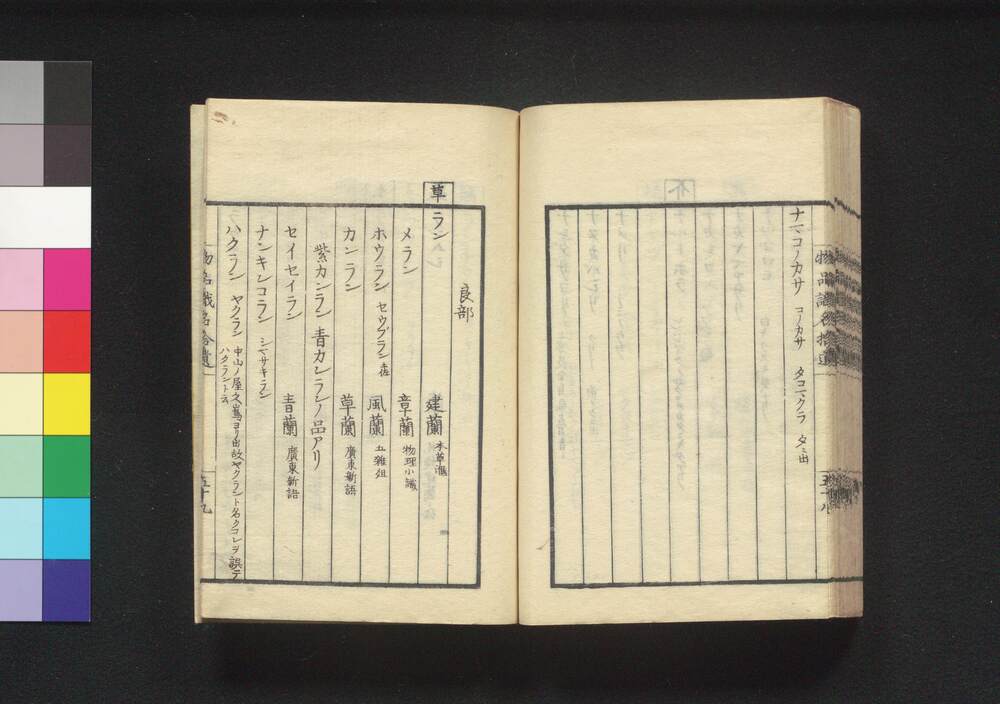 ナマコノカサ コノカサ タコマクラ タヽ出
物品識名拾遺
五十八
良部
草 ラン 建蘭 本草匯
メラン 章蘭 物理小識
ホウラン セウブラン 風蘭 五雜俎
カンラン 草蘭 廣東新語
紫カンラン 青カンランノ品アリ
セイセイラン 青蘭 廣東新語
ナンキンコラン シマサキラン
ハクラン ヤクラン 中山ノ屋久嶌ヨリ出故ヤクラント名クコレヲ誤テハクラント云
物品識名拾遺
五十九